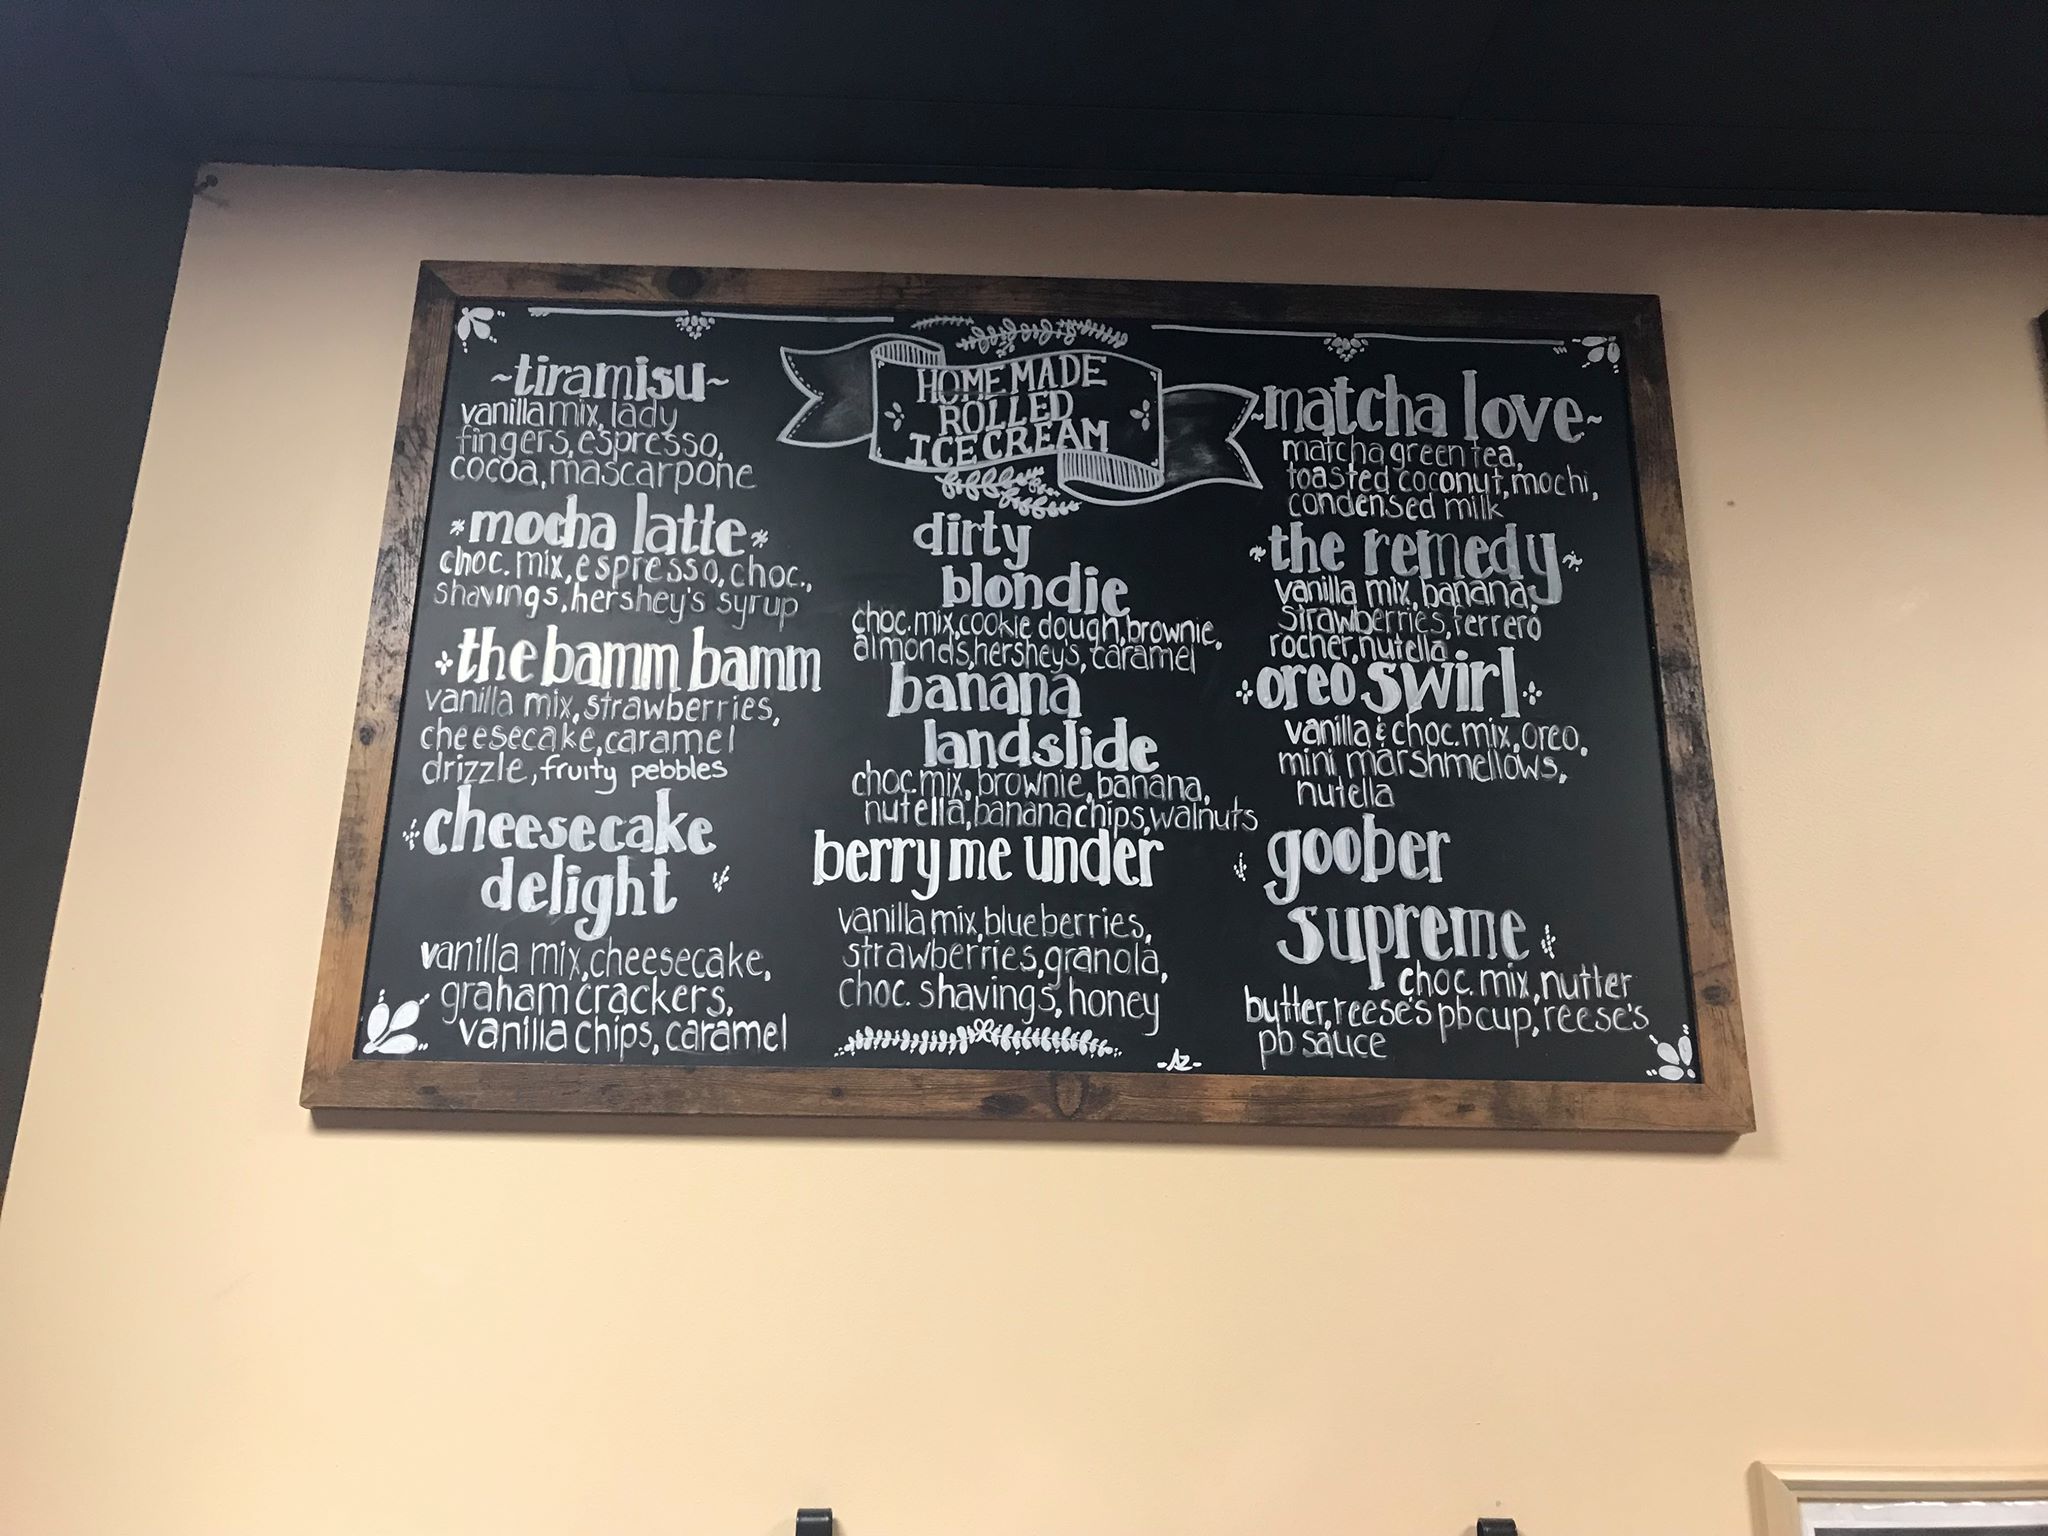 HOMEMADE
ROLLED
ICE CREAM
~tiramisu~
vanilla mix, lady
fingers, espresso,
cocoa, mascarpone
mocha latte
choc. mix, espresso, choc.,
shavings, hershey's syrup
the bamm bamm
vanilla mix, strawberries,
cheesecake, caramel
drizzle, fruity pebbles
cheesecake
delight
vanilla mix, cheesecake,
graham crackers,
vanilla chips, caramel
dirty
blondie
choc. mix, cookie dough, brownie,
almonds, hershey's, caramel
banana
landslide
choc. mix, brownie, banana,
nutella, banana chips, walnuts
berry me under
vanilla mix, blueberries,
strawberries, granola,
choc. shavings, honey
-AZ-
~matcha love~
matcha green tea,
toasted coconut, mochi,
condensed milk
the remedy
vanilla mix, banana,
strawberries, ferrero
rocher, nutella
oreo swirl
vanilla & choc. mix, oreo,
mini marshmellows,
nutella
goober
supreme
choc. mix, nutter
butter, reese's pb cup, reese's
pb sauce